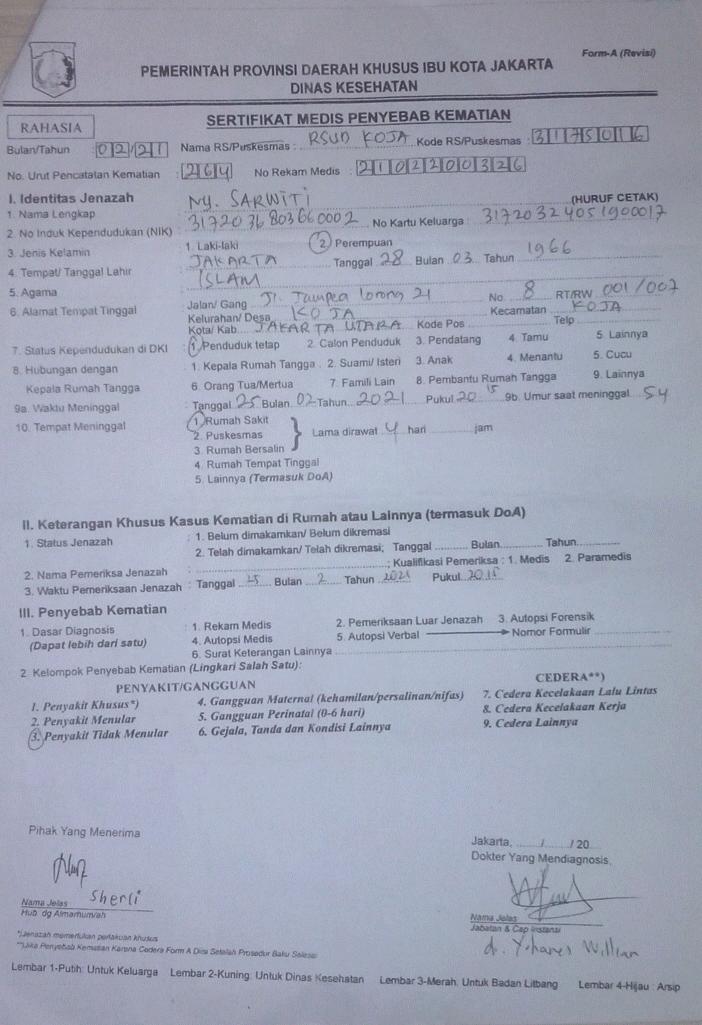 Form-A (Revisi)
PEMERINTAH PROVINSI DAERAH KHUSUS IBU KOTA JAKARTA
DINAS KESEHATAN
SERTIFIKAT MEDIS PENYEBAB KEMATIAN
RAHASIA
Bulan/Tahun : 02/21 Nama RS/Puskesmas : RSUD KOJA Kode RS/Puskesmas : 3175016
No. Urut Pencatatan Kematian : 264 No Rekam Medis : 2102200326
I. Identitas Jenazah
1. Nama Lengkap NY. SARWITI (HURUF CETAK)
2. No Induk Kependudukan (NIK) 3172036803660002 No Kartu Keluarga : 3172032405190017
3. Jenis Kelamin 1. Laki-laki 2 Perempuan
4. Tempat/ Tanggal Lahir JAKARTA Tanggal 28 Bulan 03 Tahun 1966
5. Agama ISLAM
6. Alamat Tempat Tinggal : Jalan/ Gang Jl. Jampea lorong 21 No. 8 RT/RW 001/007
Kelurahan/ Desa KOJA Kecamatan KOJA
Kota/ Kab JAKARTA UTARA Kode Pos Telp
7. Status Kependudukan di DKI : 1 Penduduk tetap 2. Calon Penduduk 3. Pendatang 4. Tamu 5. Lainnya
8. Hubungan dengan : 1. Kepala Rumah Tangga 2. Suami/ Isteri 3. Anak 4. Menantu 5. Cucu
Kepala Rumah Tangga 6. Orang Tua/Mertua 7. Famili Lain 8. Pembantu Rumah Tangga 9. Lainnya
9a. Waktu Meninggal : Tanggal 25 Bulan 02 Tahun 2021 Pukul 20 15 9b. Umur saat meninggal 54
10. Tempat Meninggal : 1. Rumah Sakit
2. Puskesmas Lama dirawat 4 hari jam
3. Rumah Bersalin
4. Rumah Tempat Tinggal
5. Lainnya (Termasuk DoA)
II. Keterangan Khusus Kasus Kematian di Rumah atau Lainnya (termasuk DoA)
1. Status Jenazah : 1. Belum dimakamkan/ Belum dikremasi
2. Telah dimakamkan/ Telah dikremasi; Tanggal Bulan Tahun
2. Nama Pemeriksa Jenazah : ; Kualifikasi Pemeriksa : 1. Medis 2. Paramedis
3. Waktu Pemeriksaan Jenazah : Tanggal 25 Bulan 2 Tahun 2021 Pukul 20.15
III. Penyebab Kematian
1. Dasar Diagnosis : 1. Rekam Medis 2. Pemeriksaan Luar Jenazah 3. Autopsi Forensik
(Dapat lebih dari satu) 4. Autopsi Medis 5. Autopsi Verbal Nomor Formulir
6. Surat Keterangan Lainnya
2. Kelompok Penyebab Kematian (Lingkari Salah Satu):
PENYAKIT/GANGGUAN CEDERA**)
1. Penyakit Khusus*) 4. Gangguan Maternal (kehamilan/persalinan/nifas) 7. Cedera Kecelakaan Lalu Lintas
2. Penyakit Menular 5. Gangguan Perinatal (0-6 hari) 8. Cedera Kecelakaan Kerja
3. Penyakit Tidak Menular 6. Gejala, Tanda dan Kondisi Lainnya 9. Cedera Lainnya
Pihak Yang Menerima Jakarta, / /20
Dokter Yang Mendiagnosis,
Sherli
Nama Jelas Nama Jelas
Hub. dg Almarhum/ah Jabatan & Cap Instansi
dr. Yohanes Willian
*)Jenazah memerlukan perlakuan khusus
**)Jika Penyebab Kematian Karena Cedera Form A Diisi Setelah Prosedur Baku Selesai
Lembar 1-Putih: Untuk Keluarga Lembar 2-Kuning: Untuk Dinas Kesehatan Lembar 3-Merah: Untuk Badan Litbang Lembar 4-Hijau : Arsip